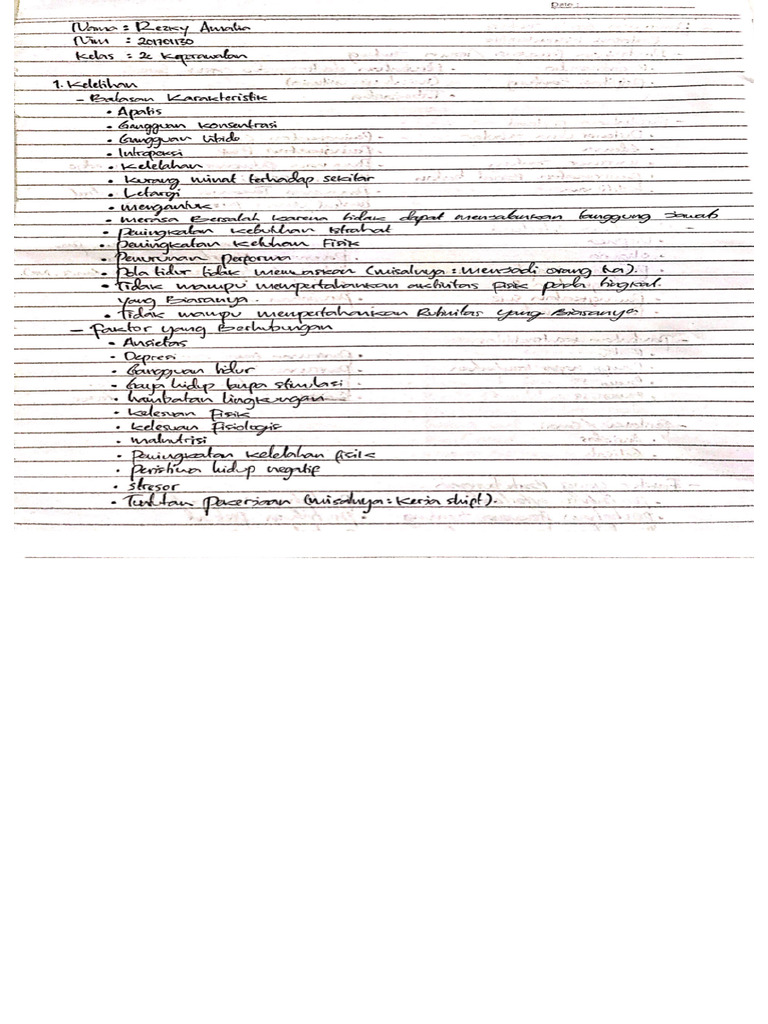 Date :
Nama : Rezky Amalia
Nim : 201701130
Kelas : 2c Keperawatan
1. Keletihan
- Batasan Karakteristik
• Apatis
• Gangguan konsentrasi
• Gangguan libido
• Intropeksi
• Kelelahan
• Kurang minat terhadap sekitar
• Letargi
• mengantuk
• merasa Bersalah karena tidak dapat menjalankan tanggung jawab
• peningkatan kebutuhan istrahat
• peningkatan keluhan Fisik
• Penurunan performa
• Pola tidur tidak memuaskan (misalnya : menjadi orang tua).
• Tidak mampu mempertahankan aktivitas fisik pada tingkat
yang Biasanya.
• Tidak mampu mempertahankan Rutinitas yang Biasanya
- Faktor yang Berhubungan
• Ansietas
• Depresi
• Gangguan tidur
• Gaya hidup tanpa stimulasi
• hambatan lingkungan
• kelesuan fisik
• kelesuan fisiologis
• malnutrisi
• peningkatan kelelahan fisik
• peristiwa hidup negatif
• stresor
• Tuntutan pekerjaan (misalnya : kerja shift).